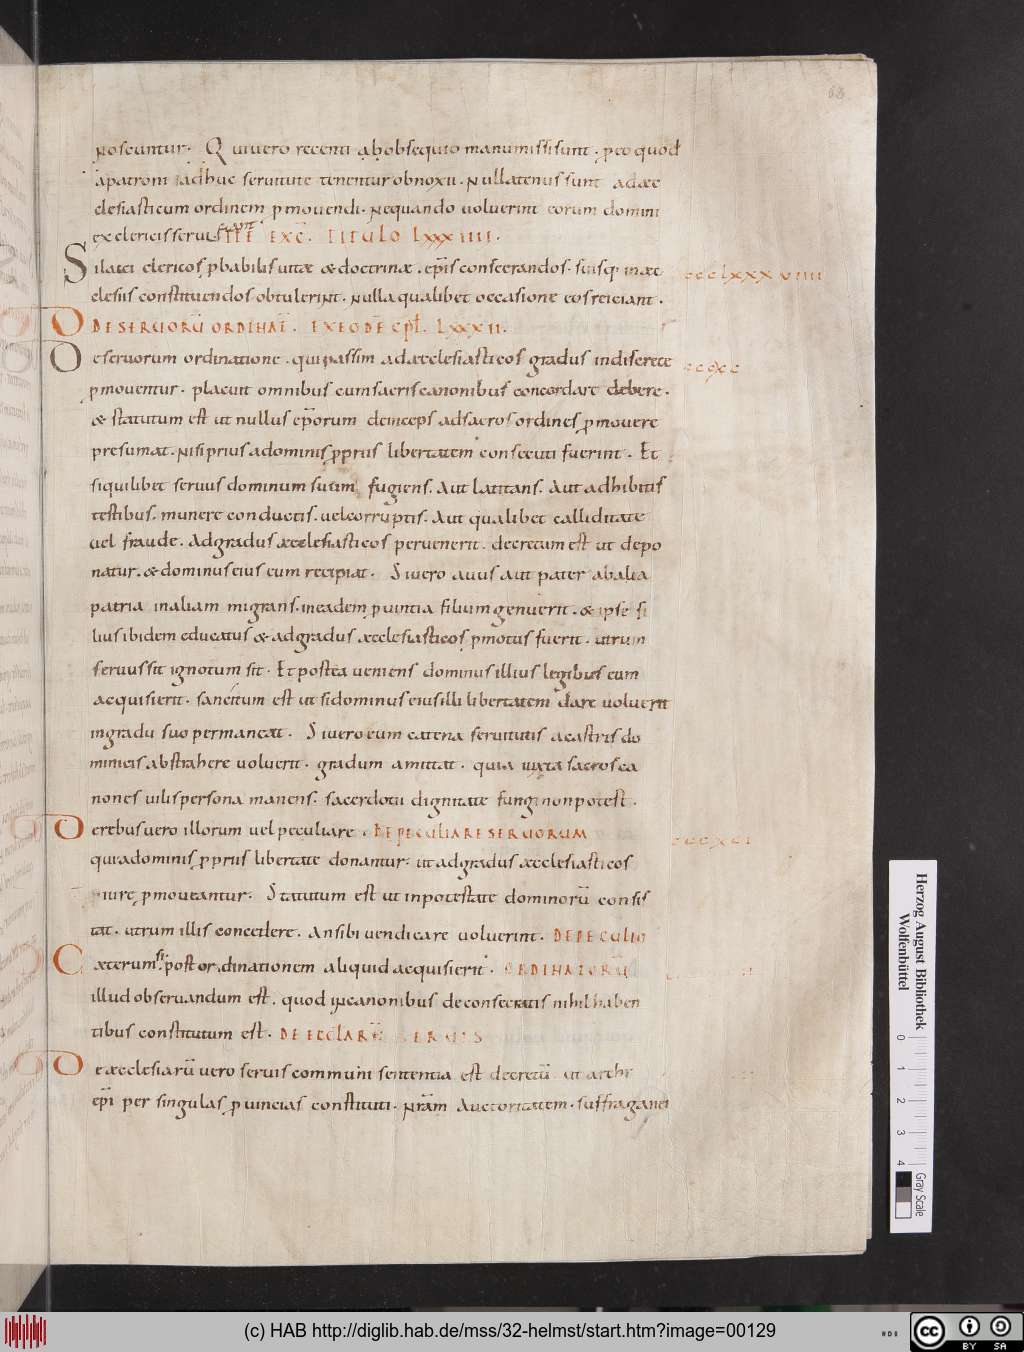 63
noscuntur. Qui vero recenti ab obsequio manumissi sunt. p eo quod
a patroni adhuc servitute tenentur obnoxii. Nullatenus sunt ad æc
clesiasticum ordinem pmovendi. Nequando voluerint eorum domini
ex clericis servus TITULO LXXXIIII.
Si laici clericos pbabilis vitæ & doctrinæ. epis consecrandos. suisq in æc
clesiis constituendos obtulerint. nulla qualibet occasione eos reiciant.
DE SERVORU ORDINAT. EX EODE CPL. LXXXII.
De servorum ordinatione. qui passim ad æcclesiasticos gradus indiscrete
pmoventur. placuit omnibus cum sacris canonibus concordare debere.
& statutum est ut nullus eporum deinceps ad sacros ordines pmovere
presumat. nisi prius a dominis ppriis libertatem consecuti fuerint. Et
si quilibet servus dominum suum fugiens. Aut latitans. Aut adhibitis
testibus. munere conductis. vel corruptis. Aut qualibet calliditate
vel fraude. Ad gradus æcclesiasticos pervenerit. decretum est ut depo
natur. & dominus eius eum recipiat. Si vero avus aut pater ab alia
patria in aliam migrans. in eadem pvintia filium genuerit. & ipse fi
lius ibidem educatus & ad gradus æcclesiasticos pmotus fuerit. utrum
servus sit ignotum sit. Et postea veniens dominus illius legibus eum
acquisierit. sancitum est ut si dominus eius illi libertatem dare voluerit
in gradu suo permaneat. Si vero eum catena servitutis a castris do
minicis abstrahere voluerit. gradum amittat. quia iuxta sacros ca
nones vilis persona manens. sacerdotii dignitate fungi non potest.
De rebus vero illorum vel peculiare. DE PECULIARE SERVORUM
qui a dominis ppriis libertate donantur. ut ad gradus æcclesiasticos
iure pmoveantur. Statutum est ut in potestate dominoru consis
tat. utrum illis concedere. An sibi vendicare voluerint. DE PECULIO
Cæterum si post ordinationem aliquid acquisierit. ORDINATORU
illud observandum est. quod in canonibus de consecratis nihil haben
tibus constitutum est. DE ECCLARU SERVIS
De æcclesiaru vero servis communi sententia est decretu. ut archi
epi per singulas pvincias constituti. nram Auctoritatem. suffraganei
cccxci
Herzog August Bibliothek
Wolfenbüttel
0 1 2 3 4
Gray Scale
(c) HAB http://diglib.hab.de/mss/32-helmst/start.htm?image=00129
cc BY SA